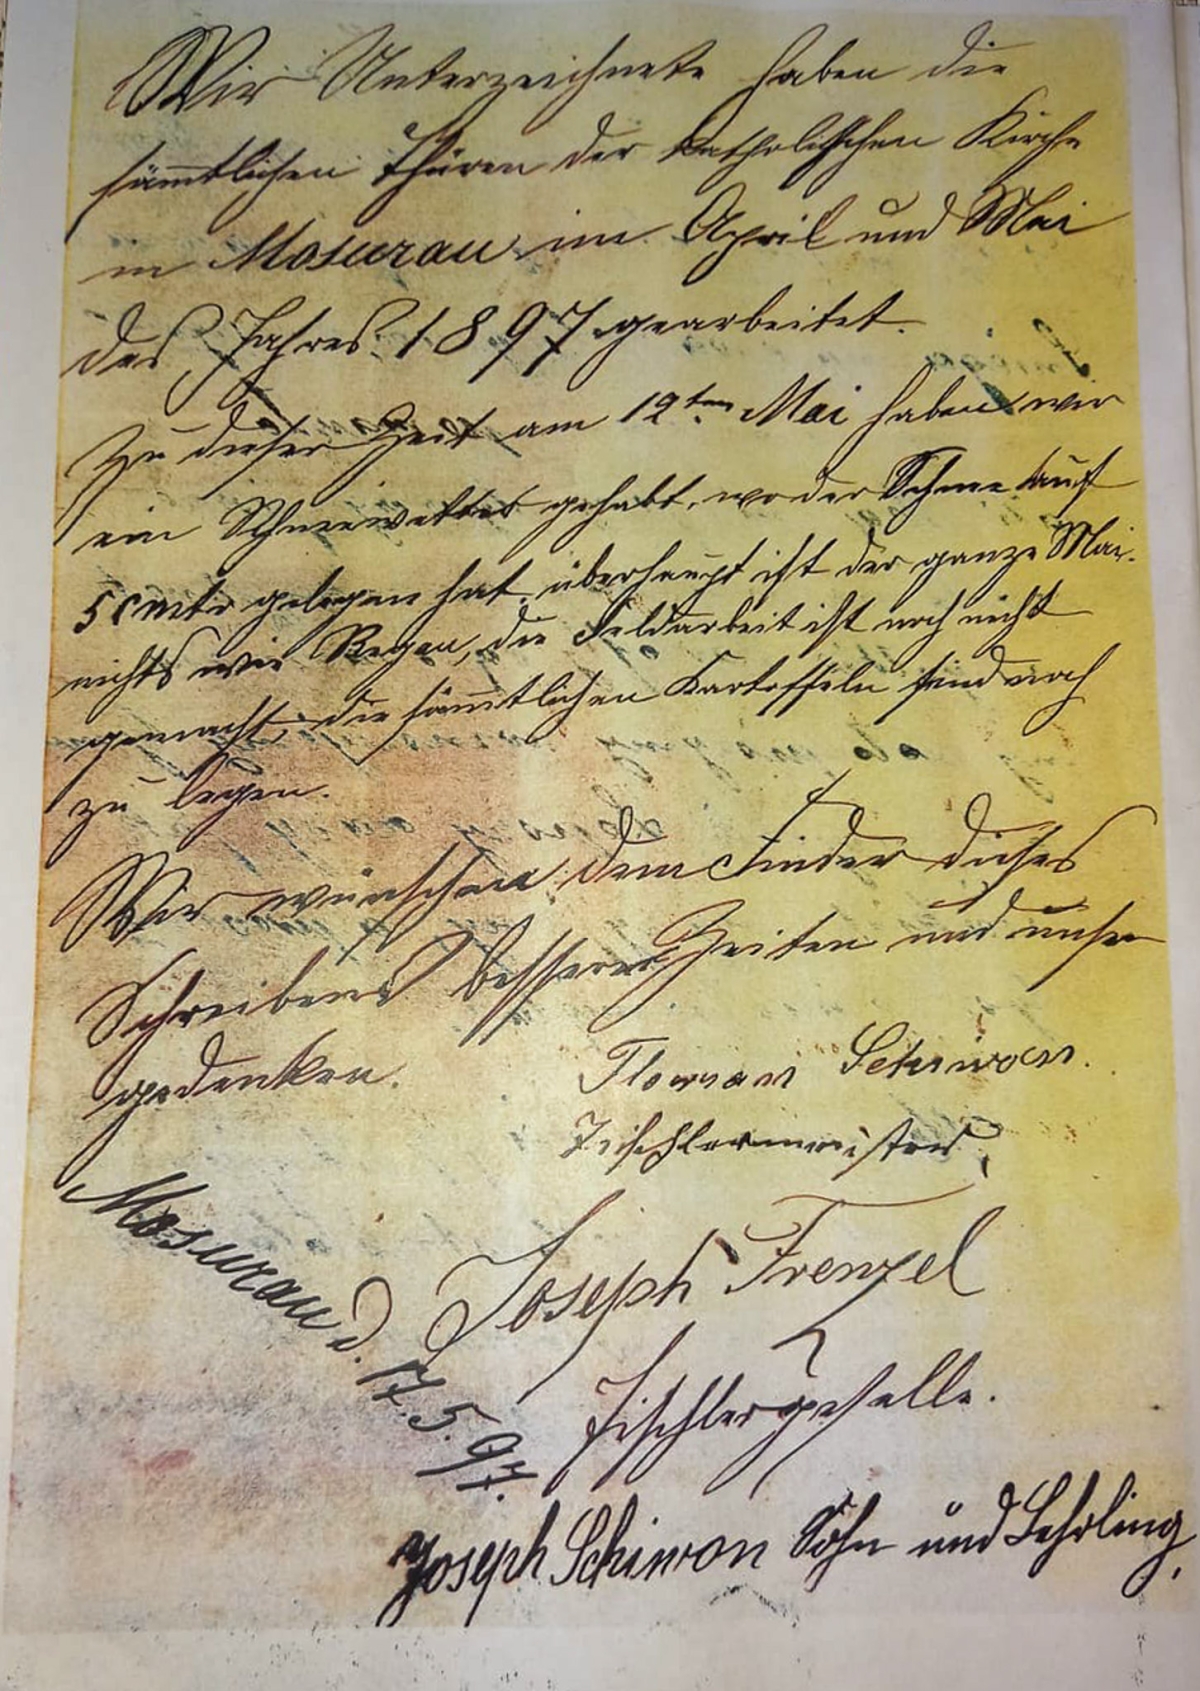 Wir Unterzeichnete haben die
sämtlichen Thüren der katholischen Kirche
in Mosurau im April und Mai
des Jahres 1897 gearbeitet.
Zu dieser Zeit am 12ten Mai haben wir
ein Schneewetter gehabt, wo der Schnee auf
5 cmtr gelegen hat, überhaupt ist der ganze Mai
nichts wie Regen, die Feldarbeit ist noch nicht
gemacht, die sämtlichen Kartoffeln sind noch
zu legen.
Wir wünschen dem Finder dieses
Schreibens besserer Zeiten und unser
gedenken.
Florian Schiwon.
Tischlermeister,
Mosurau d. 17. 5. 97.
Joseph Frenzel
Tischlergeselle.
Joseph Schiwon Sohn und Lehrling,